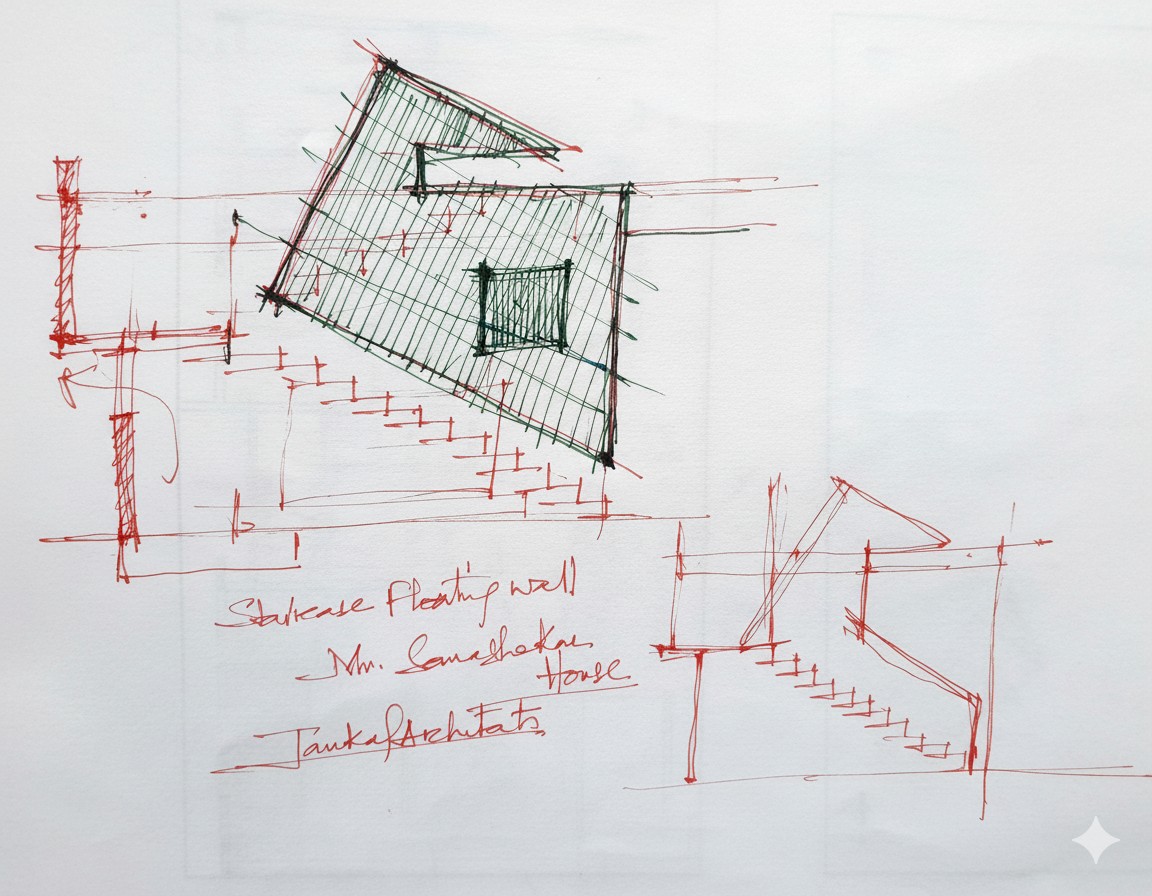 Staircase Floating wall
Mr. Somashekar
House
Tankal Architects